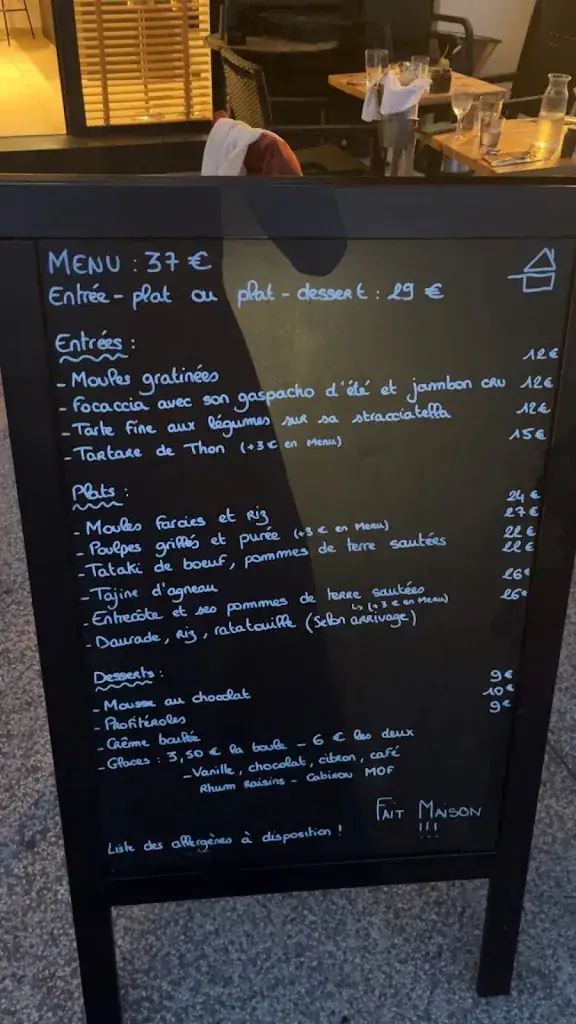 MENU : 37 €
Entrée - plat ou plat - dessert : 29 €
Entrées :
- Moules gratinées 12€
- Focaccia avec son gaspacho d'été et jambon cru 12€
- Tarte fine aux légumes sur sa stracciatella 12€
- Tartare de Thon (+3€ en Menu) 15€
Plats :
- Moules farcies et Riz 24€
- Poulpes grillés et purée (+3 € en Menu) 27€
- Tataki de boeuf, pommes de terre sautées 22€
- Tajine d'agneau 22€
- Entrecôte et ses pommes de terre sautées 26€
↳ (+3 € en Menu)
- Daurade, riz, ratatouille (Selon arrivage) 26€
Desserts :
- Mousse au chocolat 9€
- Profitéroles 10€
- Crème brulée 9€
- Glaces : 3,50 € la boule - 6 € les deux
- Vanille, chocolat, citron, café
Rhum Raisins - Cabirou MOF
FAIT MAISON
!!!
Liste des allergènes à disposition !